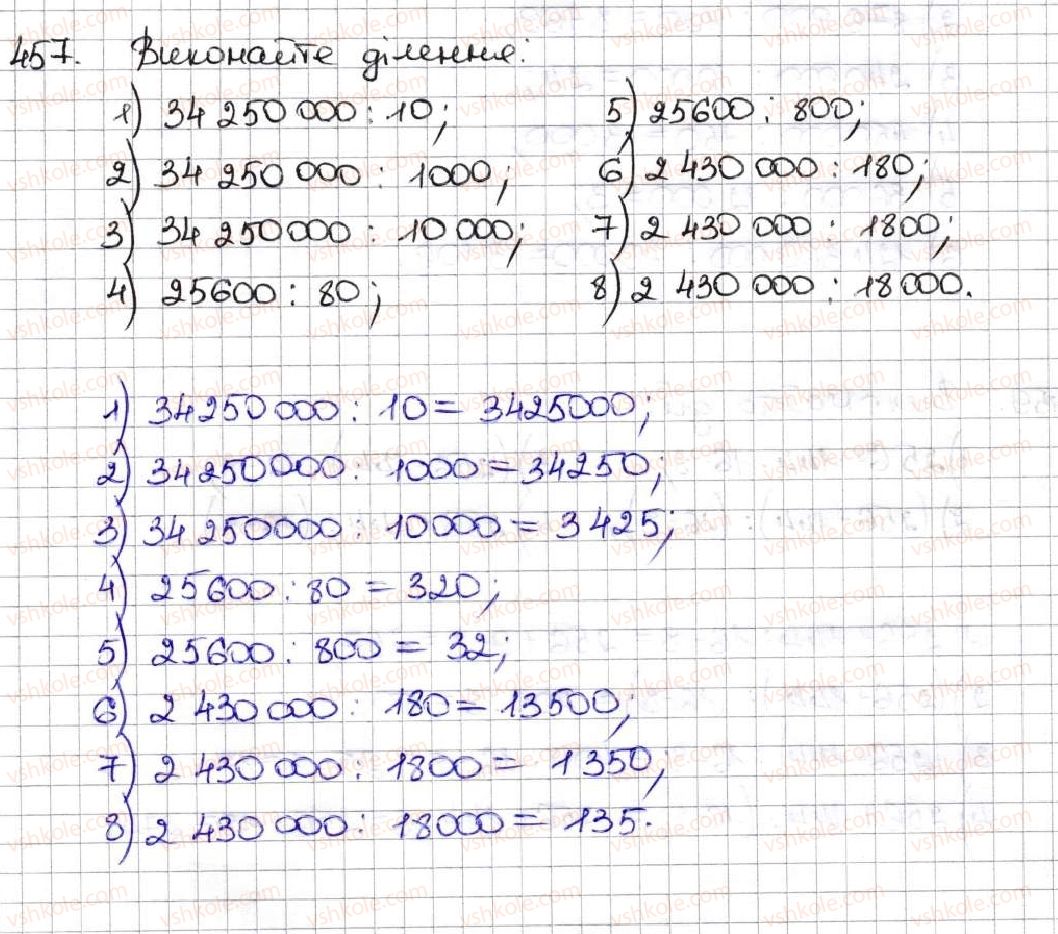 457. Виконайте ділення:
1) 34 250 000 : 10; 5) 25600 : 800;
2) 34 250 000 : 1000; 6) 2 430 000 : 180;
3) 34 250000 : 10 000; 7) 2 430 000 : 1800;
4) 25600 : 80; 8) 2 430 000 : 18 000.
1) 34250 000 : 10 = 3425000;
2) 34250000 : 1000 = 34250;
3) 34 250000 : 10000 = 3425;
4) 25600 : 80 = 320;
5) 25600 : 800 = 32;
6) 2 430 000 : 180 = 13500;
7) 2 430 000 : 1800 = 1350;
8) 2 430 000 : 18000 = 135.
vshkole.com